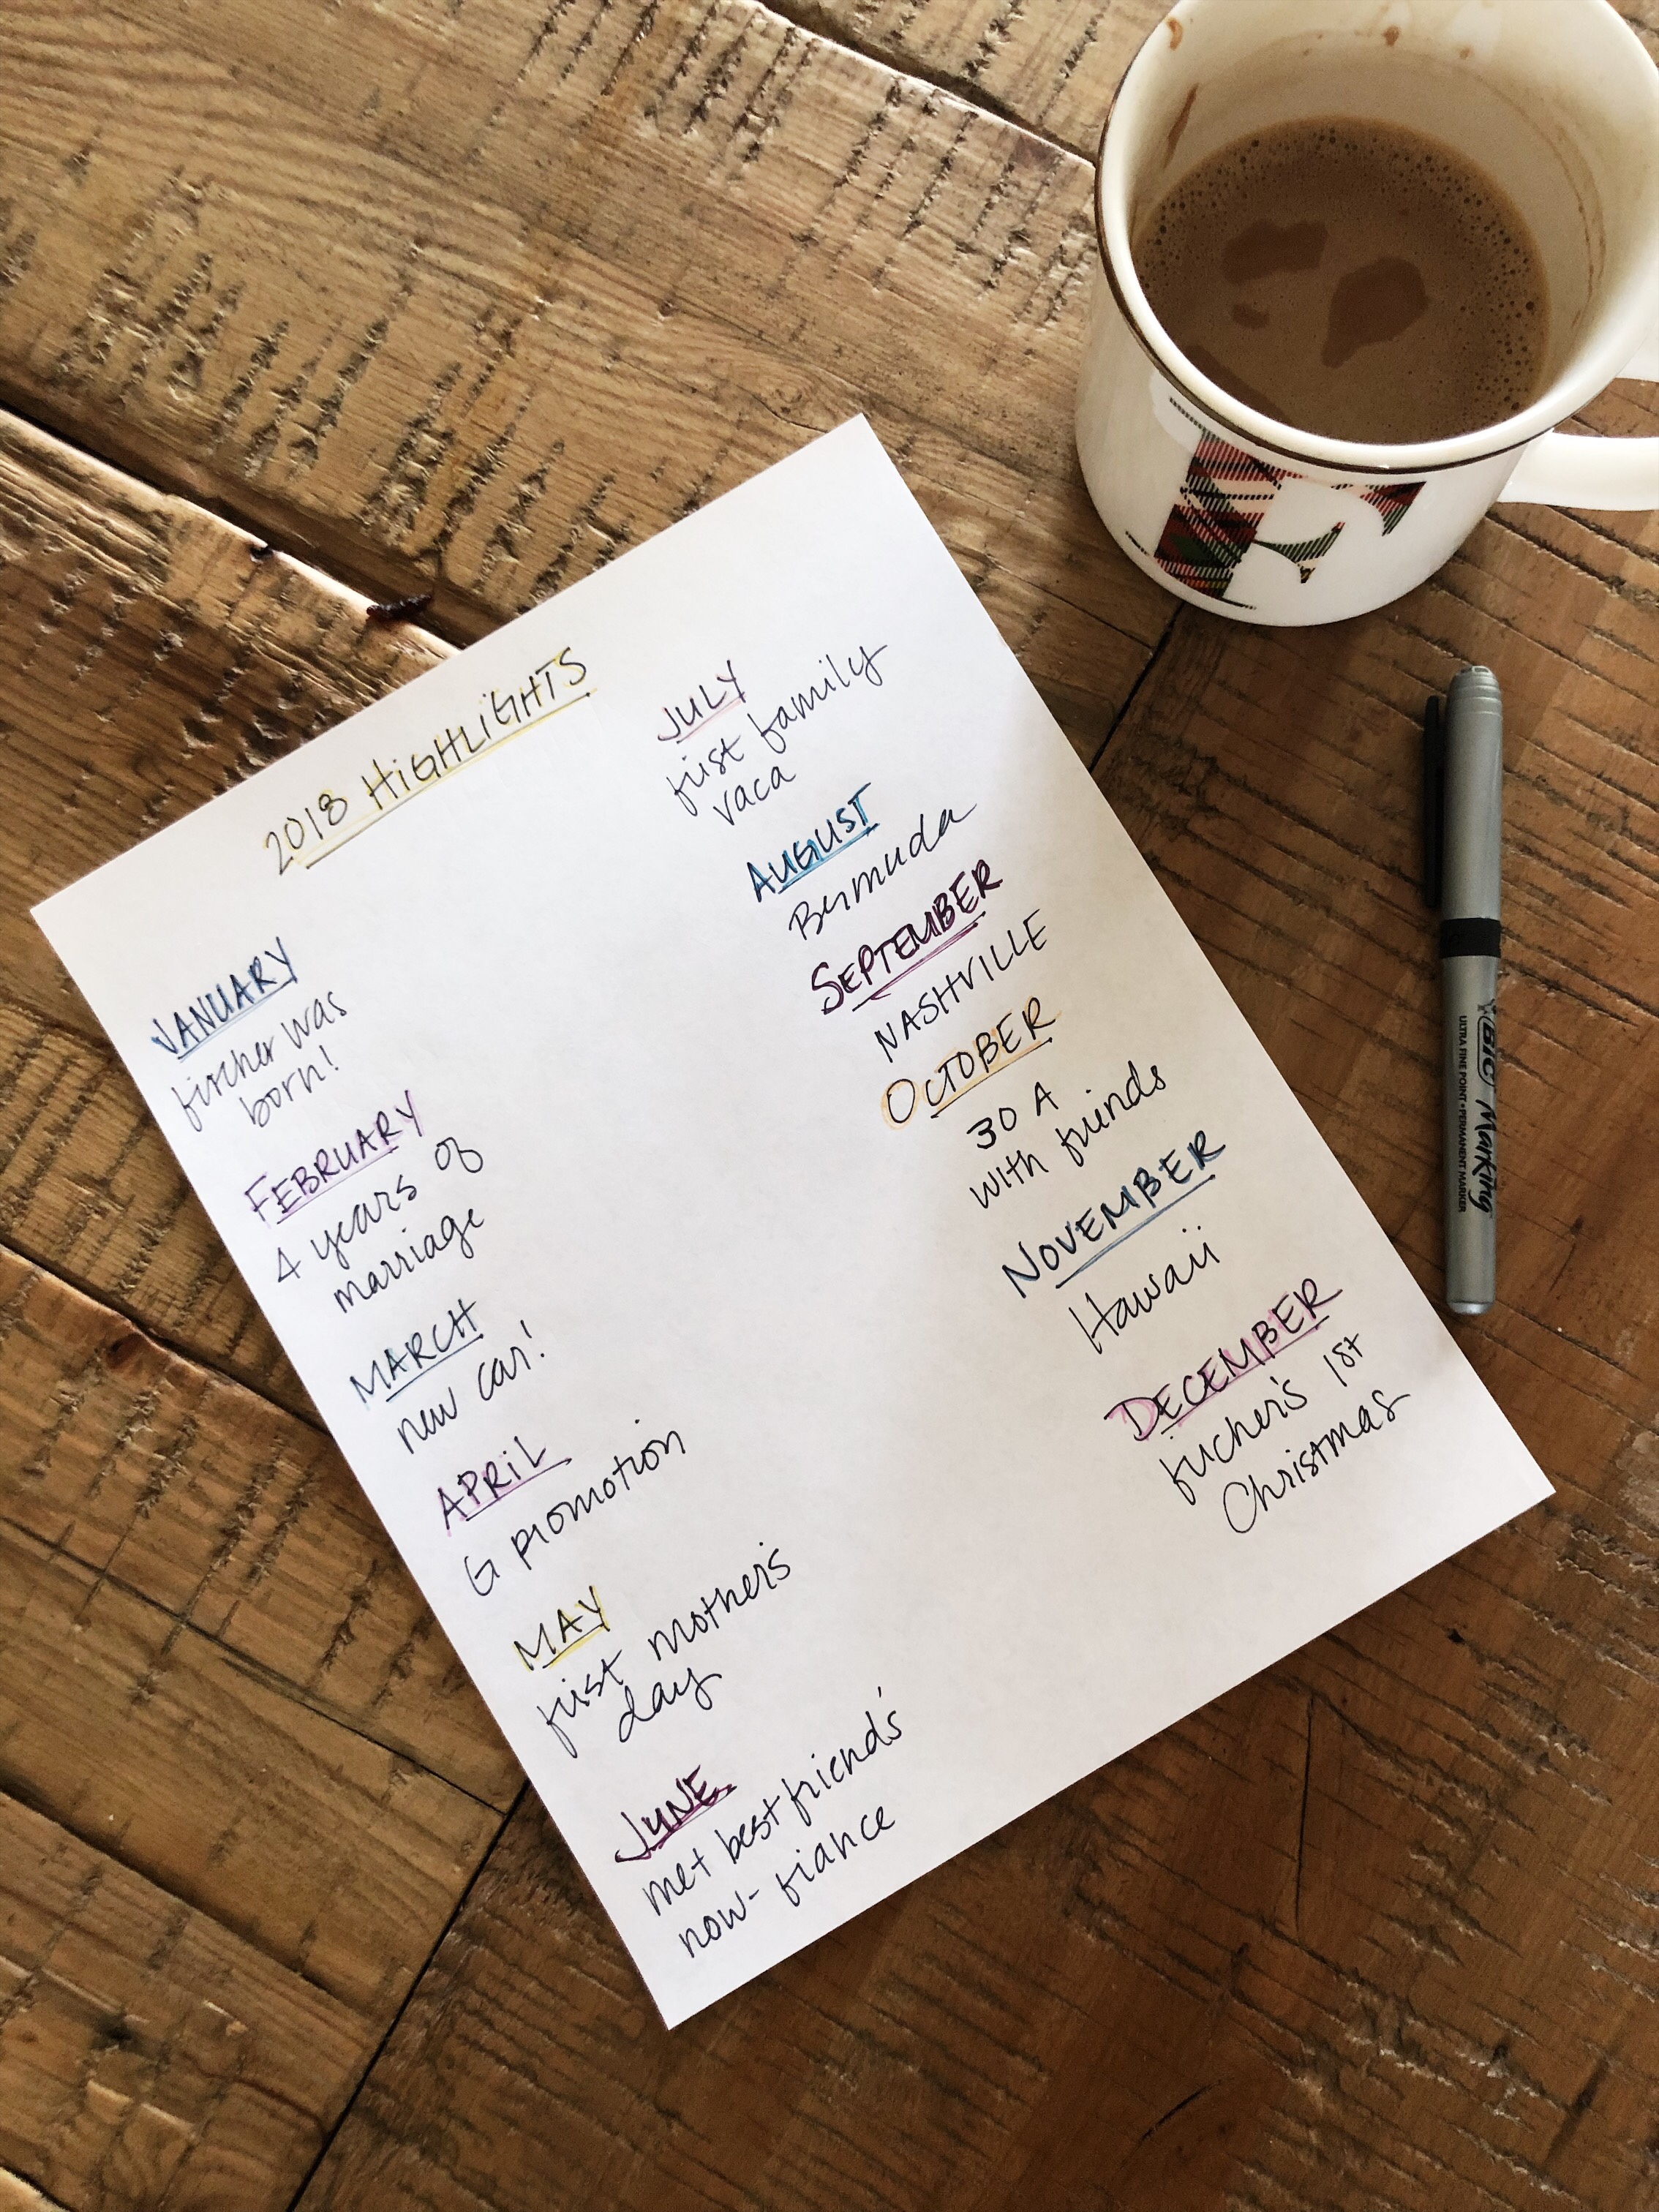 2018 HIGHLIGHTS
JANUARY
fircher was
born!
FEBRUARY
4 years of
marriage
MARCH
new car!
APRIL
G promotion
MAY
first mother's
day
JUNE
met best friends'
now-fiance
JULY
first family
vaca
AUGUST
Bermuda
SEPTEMBER
NASHVILLE
OCTOBER
30 A
with friends
NOVEMBER
Hawaii
DECEMBER
fircher's 1st
Christmas
F
BIC Marking
ULTRA FINE POINT • PERMANENT MARKER